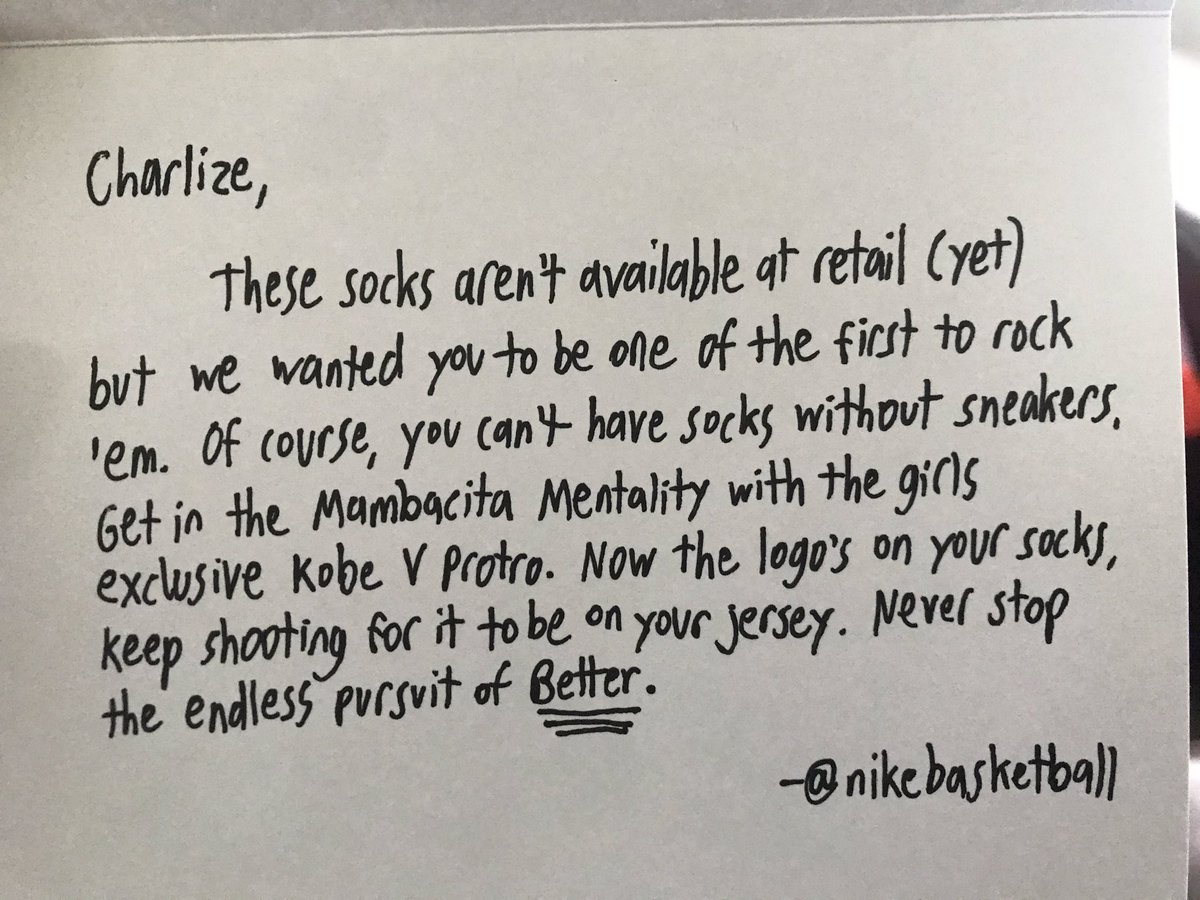 Charlize,
These socks aren't available at retail (yet)
but we wanted you to be one of the first to rock
'em. Of course, you can't have socks without sneakers.
Get in the Mambacita Mentality with the girls
exclusive Kobe V Protro. Now the logo's on your socks,
keep shooting for it to be on your jersey. Never stop
the endless pursuit of Better.
-@nikebasketball